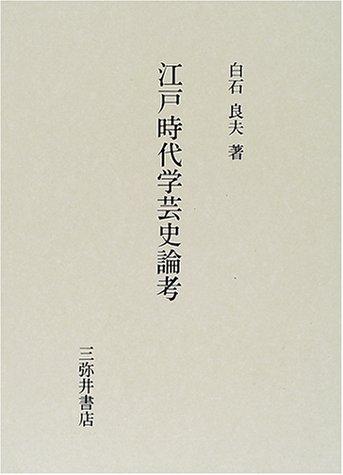 白石良夫 著
江戸時代学芸史論考
三弥井書店